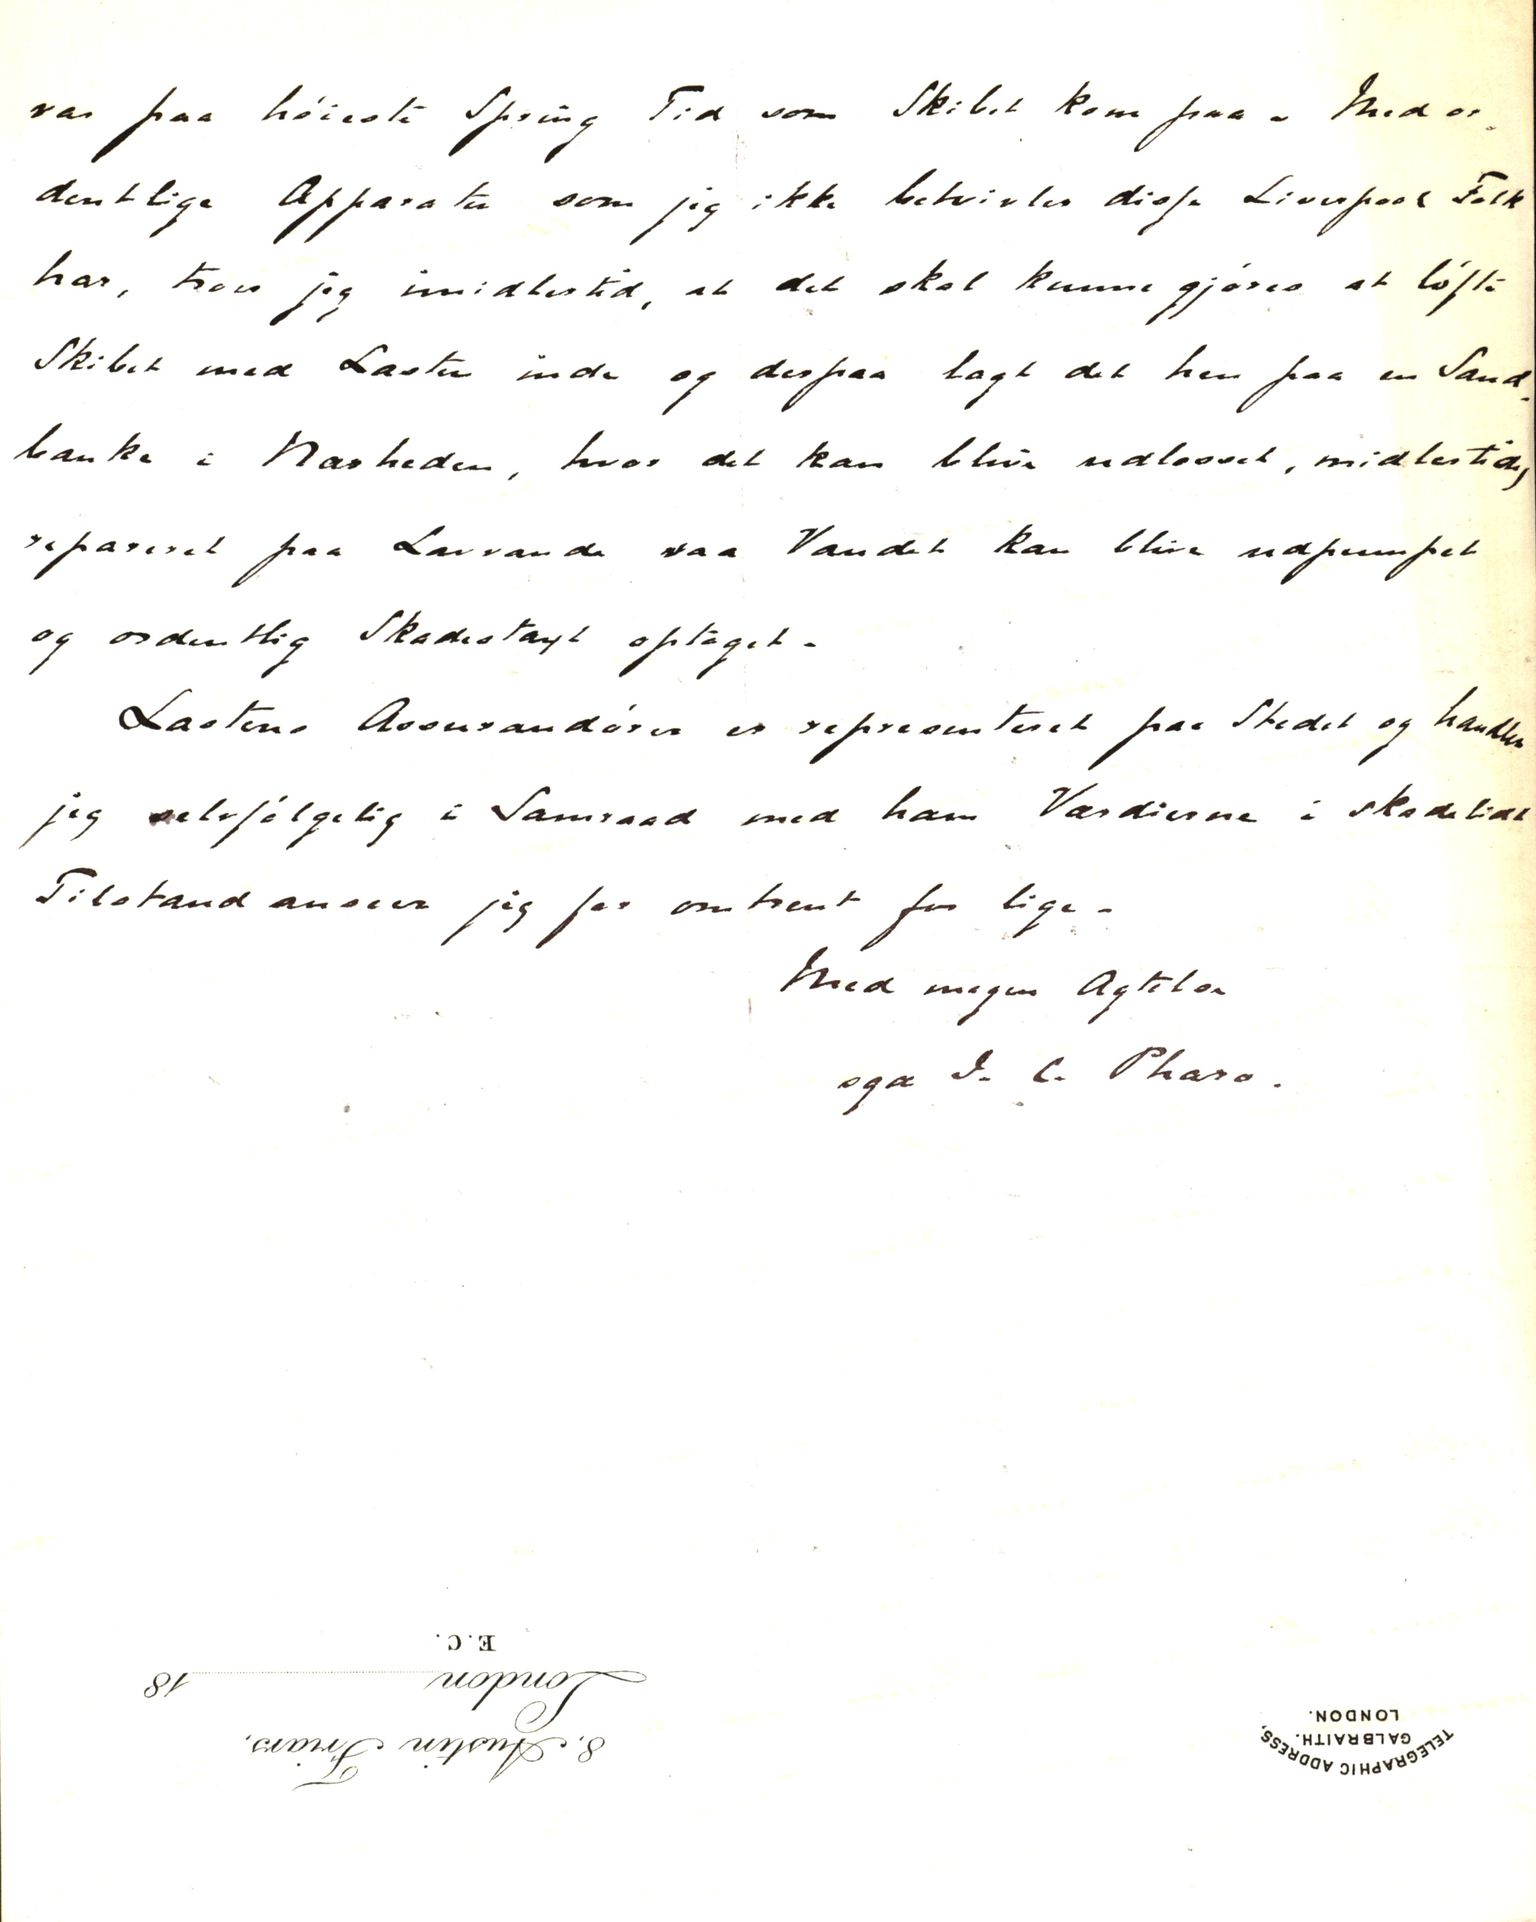 var paa høieste Spring Tid som Skibet kom paa - Med or-
dentlige Apparater som jeg ikke betvivler disse Liverpool Folk
har, troer jeg imidlertid, at det skal kunne gjøres at løfte
Skibet med Lasten inde og derpaa lagt det hen paa en Sand-
banke i Nærheden, hvor det kan blive udlosset, midlertidig
repareret paa Lavvande saa Vandet kan blive udpumpet
og ordentlig Skadestaxt optaget -
Lastens Assurandører er representeret paa Stedet og handler
jeg selvfølgelig i Samraad med ham Værdierne i skadelidt
Tilstand anseer jeg for omtrent for lige -
Med megen Agtelse
sgd J. C. Pharo.
8, Austin Friars,
London 18
E.C.
TELEGRAPHIC ADDRESS,
GALBRAITH.
LONDON.